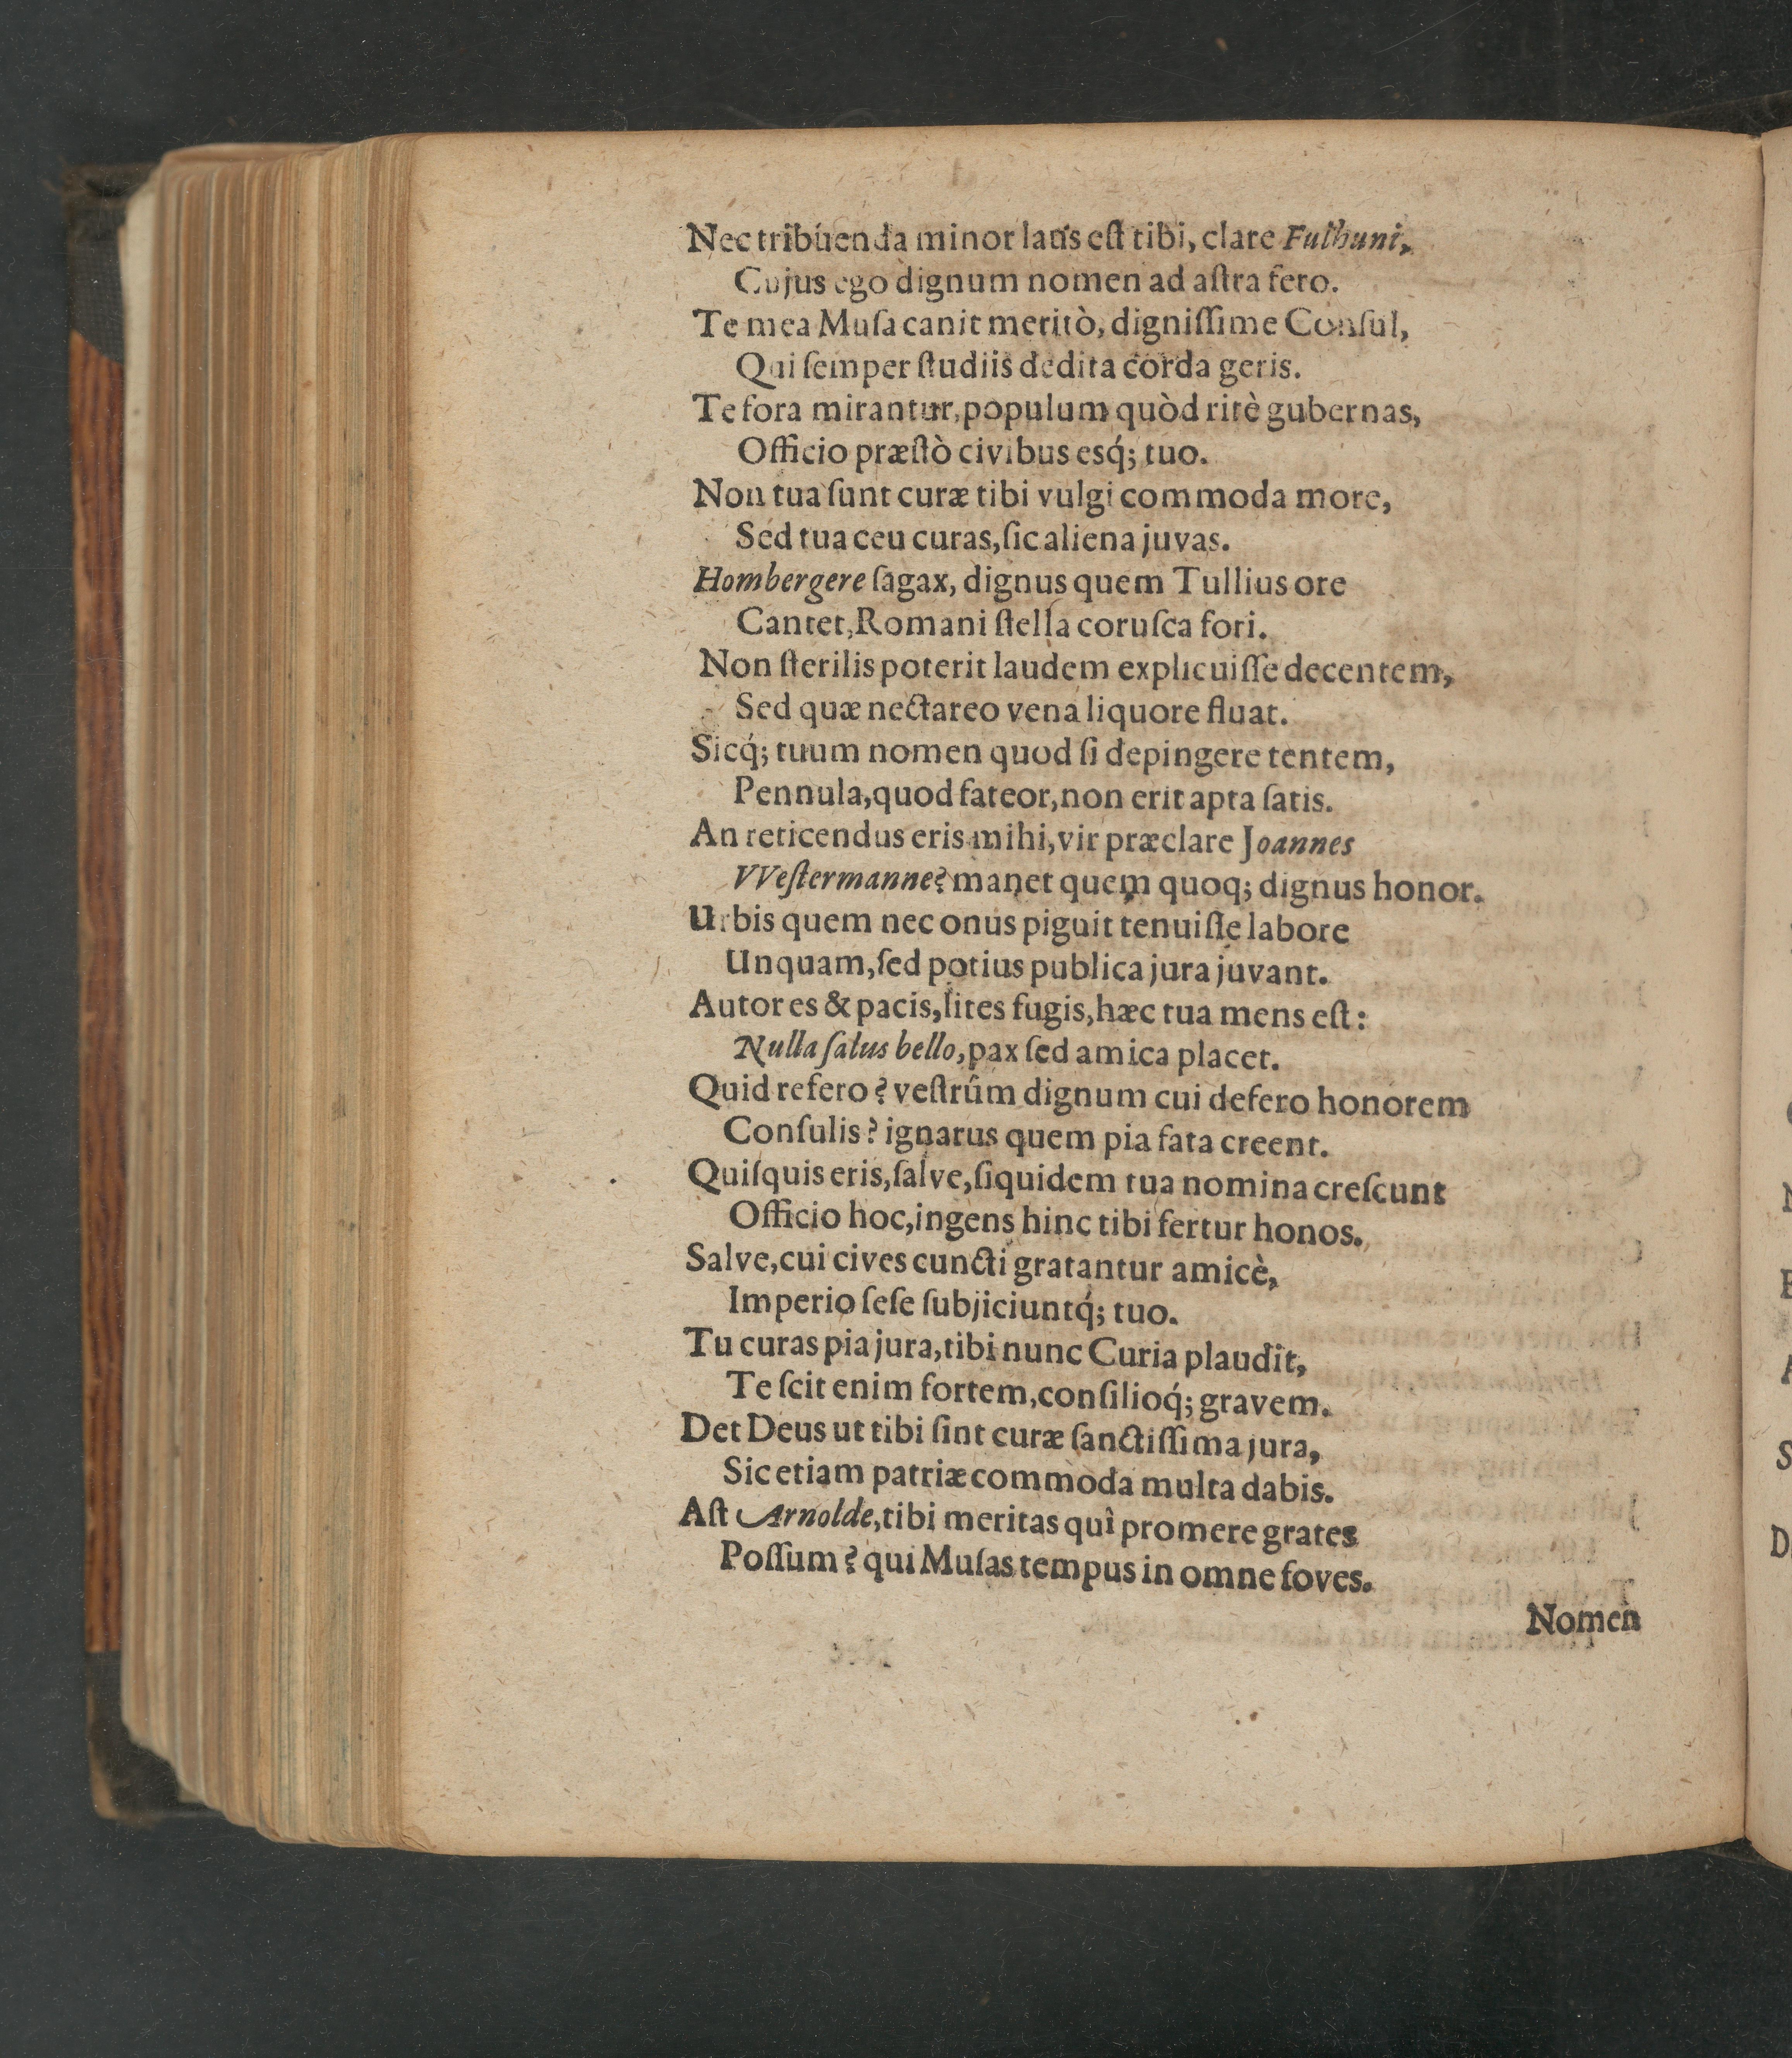 Nec tribuenda minor laus eſt tibi, clare Fulhuni,
Cujus ego dignum nomen ad aſtra fero.
Te mea Muſa canit meritò, digniſſime Conſul,
Qui ſemper ſtudiis dedita corda geris.
Te fora mirantur, populum quòd ritè gubernas,
Officio præſtò civibus esq́; tuo.
Non tua ſunt curæ tibi vulgi commoda more,
Sed tua ceu curas, ſic aliena juvas.
Hombergere ſagax, dignus quem Tullius ore
Cantet, Romani ſtella coruſca fori.
Non ſterilis poterit laudem explicuiſſe decentem,
Sed quæ nectareo vena liquore fluat.
Sicq́; tuum nomen quod ſi depingere tentem,
Pennula, quod fateor, non erit apta ſatis.
An reticendus eris mihi, vir præclare Joannes
VVeſtermanne? manet quem quoq; dignus honor.
Urbis quem nec onus piguit tenuiſſe labore
Unquam, ſed potius publica jura juvant.
Autor es & pacis, lites fugis, hæc tua mens eſt:
Nulla ſalus bello, pax ſed amica placet.
Quid refero? veſtrûm dignum cui defero honorem
Conſulis? ignarus quem pia fata creent.
Quiſquis eris, ſalve, ſiquidem tua nomina creſcunt
Officio hoc, ingens hinc tibi fertur honos.
Salve, cui cives cuncti gratantur amicè,
Imperio ſeſe ſubjiciuntq́; tuo.
Tu curas pia jura, tibi nunc Curia plaudit,
Te ſcit enim fortem, conſilioq́; gravem.
Det Deus ut tibi ſint curæ ſanctiſſima jura,
Sic etiam patriæ commoda multa dabis.
Aſt Arnolde, tibi meritas quì promere grates
Poſſum? qui Muſas tempus in omne foves.
Nomen